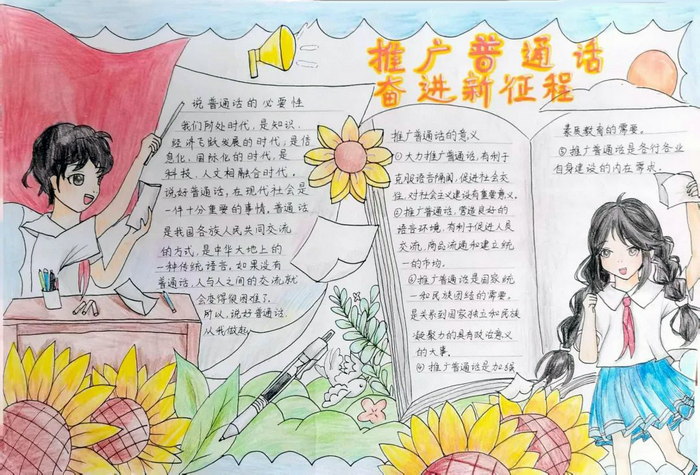 推广普通话
奋进新征程
说普通话的必要性
我们所处时代,是知识、
经济飞跃发展的时代,是信
息化,国际化的时代,是
科技,人文相融合时代,
说好普通话,在现代社会是
一件十分重要的事情,普通话
是我国各族人民共同交流
的方式,是中华大地上的
一种传统语言,如果没有
普通话,人与人之间的交流就
会变得很困难了。
所以,说好普通话,
从我做起
推广普通话的意义
①大力推广普通话,有利于
克服语言隔阂,促进社会交
往,对社会主义建设有重要意义。
②推广普通话,营造良好的
语言环境,有利于促进人员
交流,商品流通和建立统
一的市场。
③推广普通话是国家统
一和民族团结的需要,
是关系到国家独立和民族
凝聚力的具有政治意义
的大事。
④推广普通话是加强
素质教育的需要。
⑤推广普通话是各行各业
自身建设的内在需求。